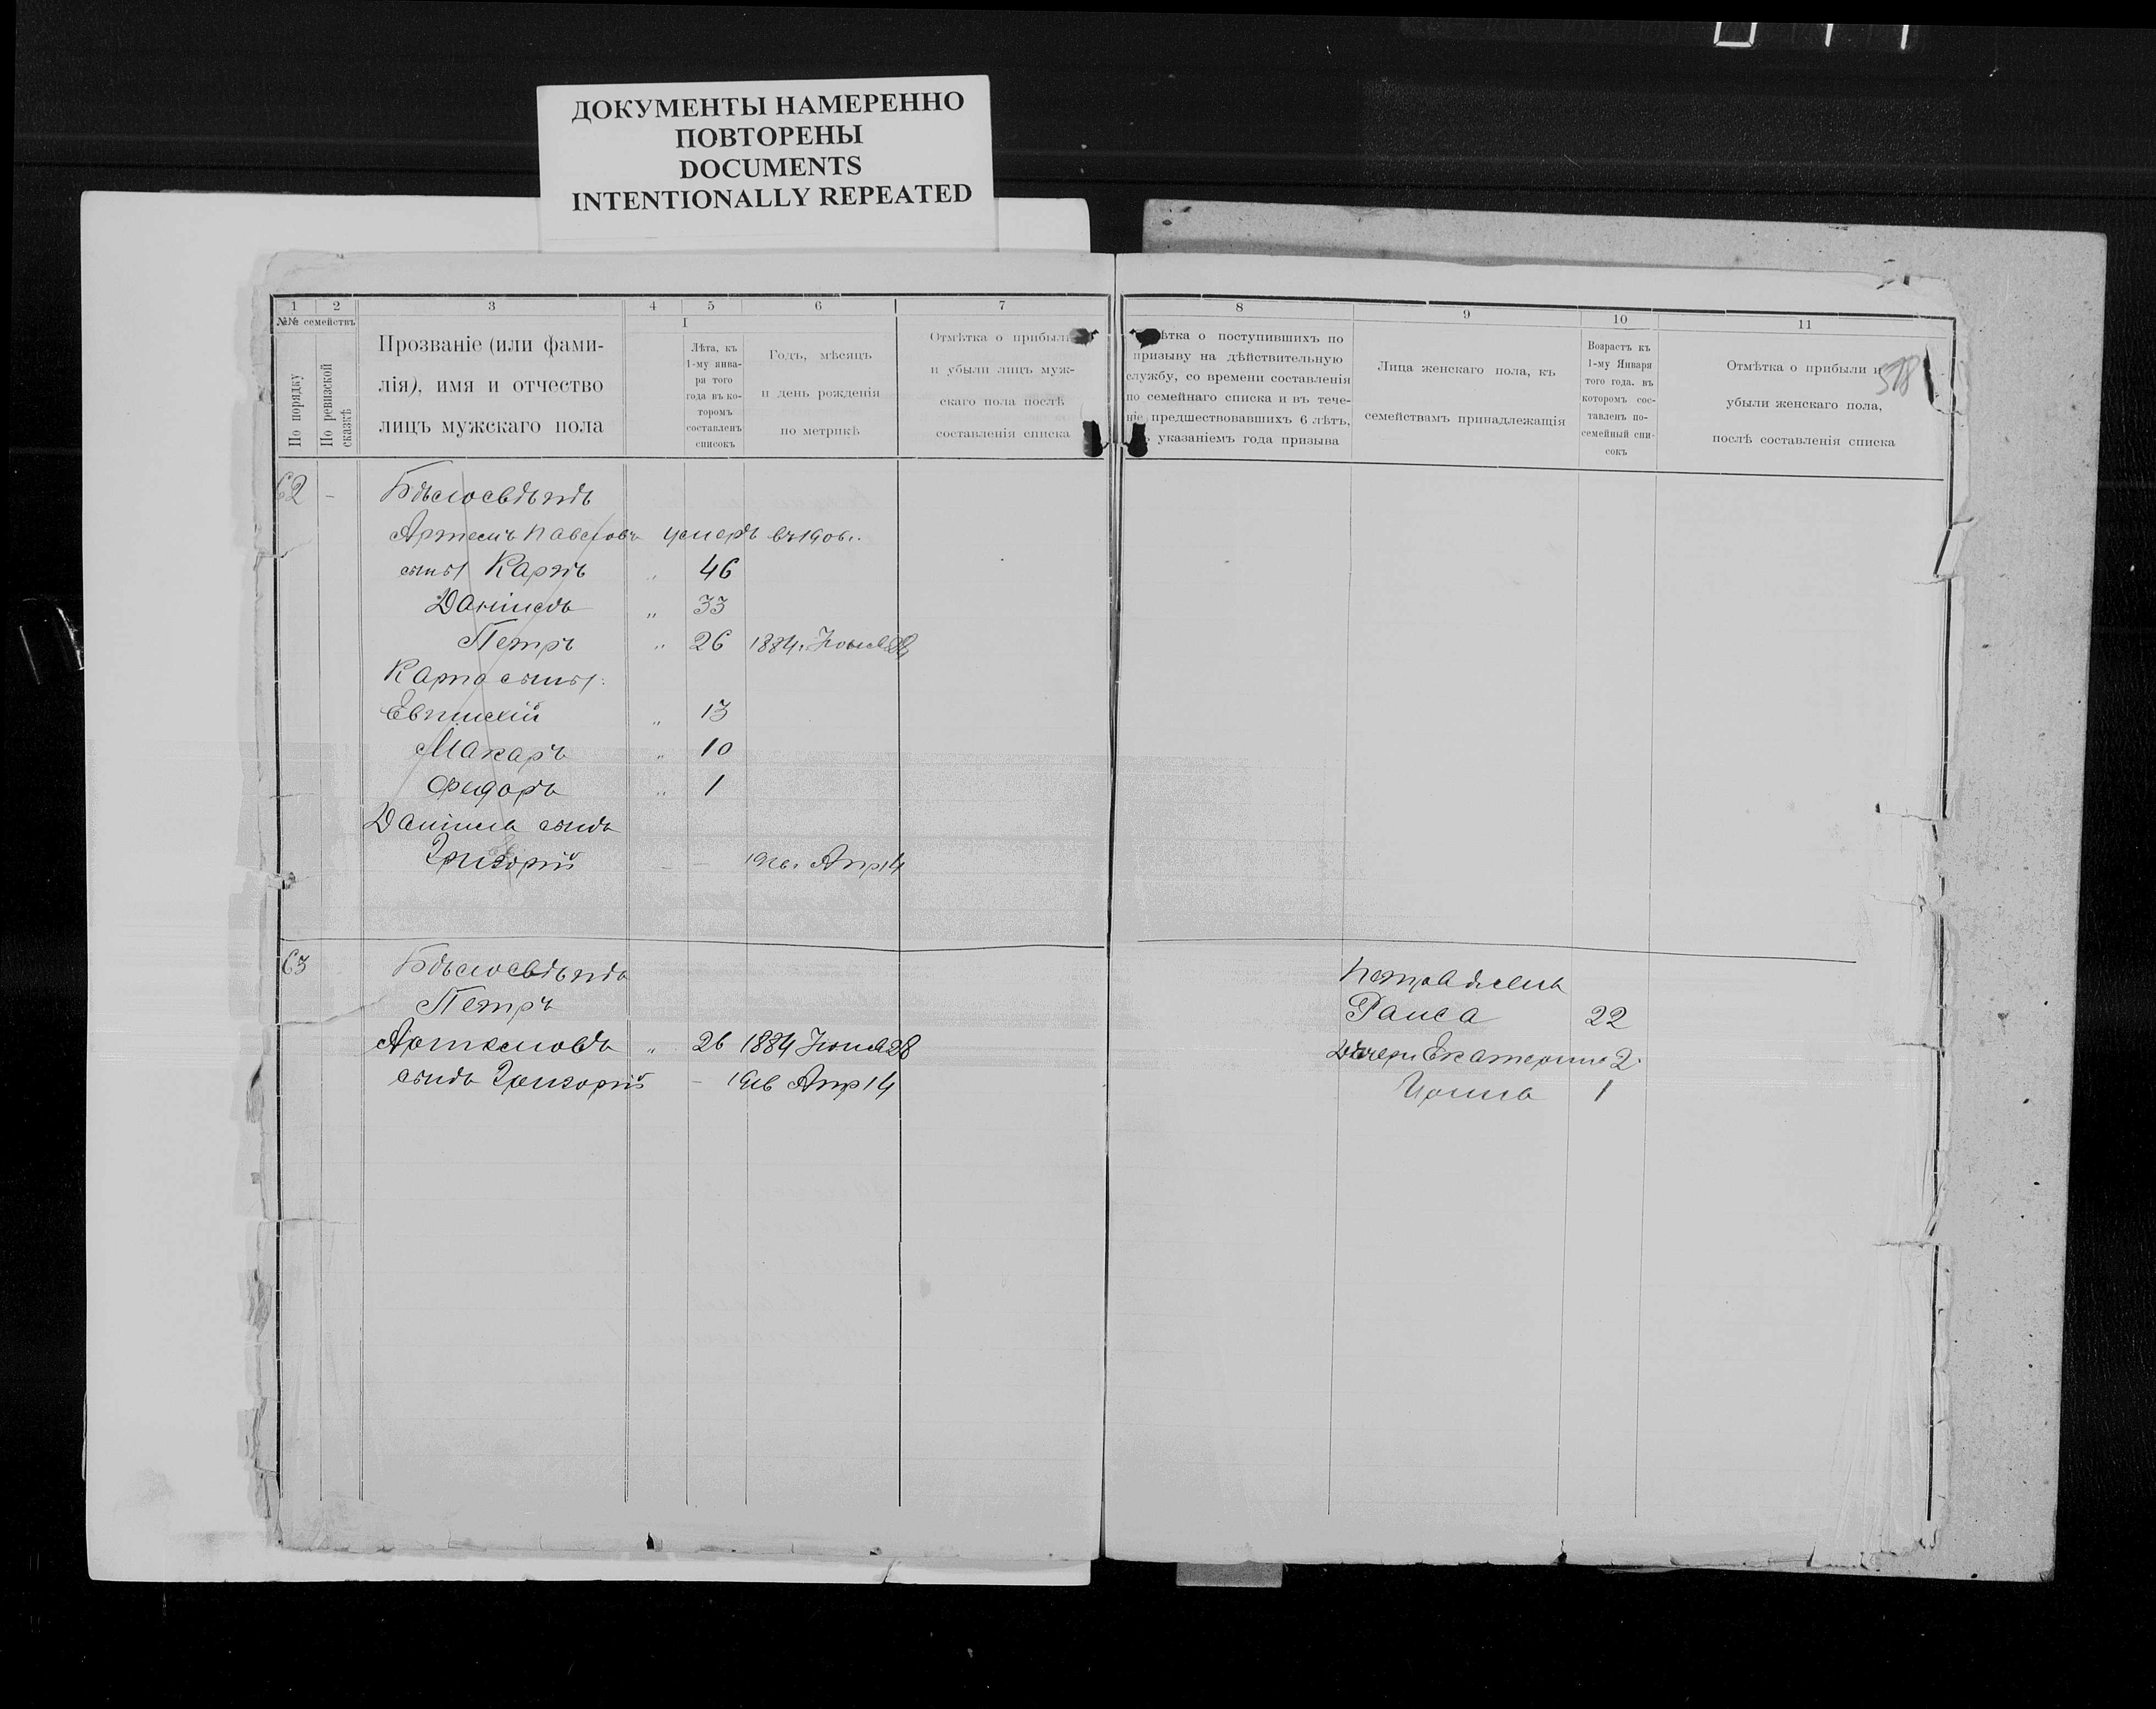 ДОКУМЕНТЫ НАМЕРЕННО
ПОВТОРЕНЫ
DOCUMENTS
INTENTIONALLY REPEATED
1 2 3 4 5 6 7
№№ семействъ
По порядку
По ревизской сказкѣ
Прозваніе (или фами-
лія), имя и отчество
лицъ мужскаго пола
I
Лѣта, къ
1-му янва-
ря того
года въ ко-
торомъ
составленъ
списокъ
Годъ, мѣсяцъ
и день рожденія
по метрикѣ
Отмѣтка о прибыли
и убыли лицъ муж-
скаго пола послѣ
составленія списка
62 -
Бѣлосвѣтъ
Артемъ Павловъ умеръ въ 1906 г.
сыны Карпъ " 46
Даніилъ " 33
Петръ " 26 1884 г. Іюня 28
Карпа сыны:
Евтихій " 13
Макаръ " 10
Федоръ " 1
Даніила сынъ
Григорій - - 1916 г. Апр 14
63
Бѣлосвѣтъ
Петръ
Артемовъ " 26 1884 Іюня 28
сынъ Григорій - 1916 Апр 14
8 9 10 11
ѣтка о поступившихъ по
призыву на дѣйствительную
службу, со времени составленія
по семейнаго списка и въ тече-
ніе предшествовавшихъ 6 лѣтъ,
указаніемъ года призыва
Лица женскаго пола, къ
семействамъ принадлежащія
Возрастъ къ
1-му Января
того года. въ
которомъ сос-
тавленъ по-
семейный спи-
сокъ
Отмѣтка о прибыли и
убыли женскаго пола,
послѣ составленія списка
Петра жена
Раиса 22
дочери Екатерина 2
Ирина 1